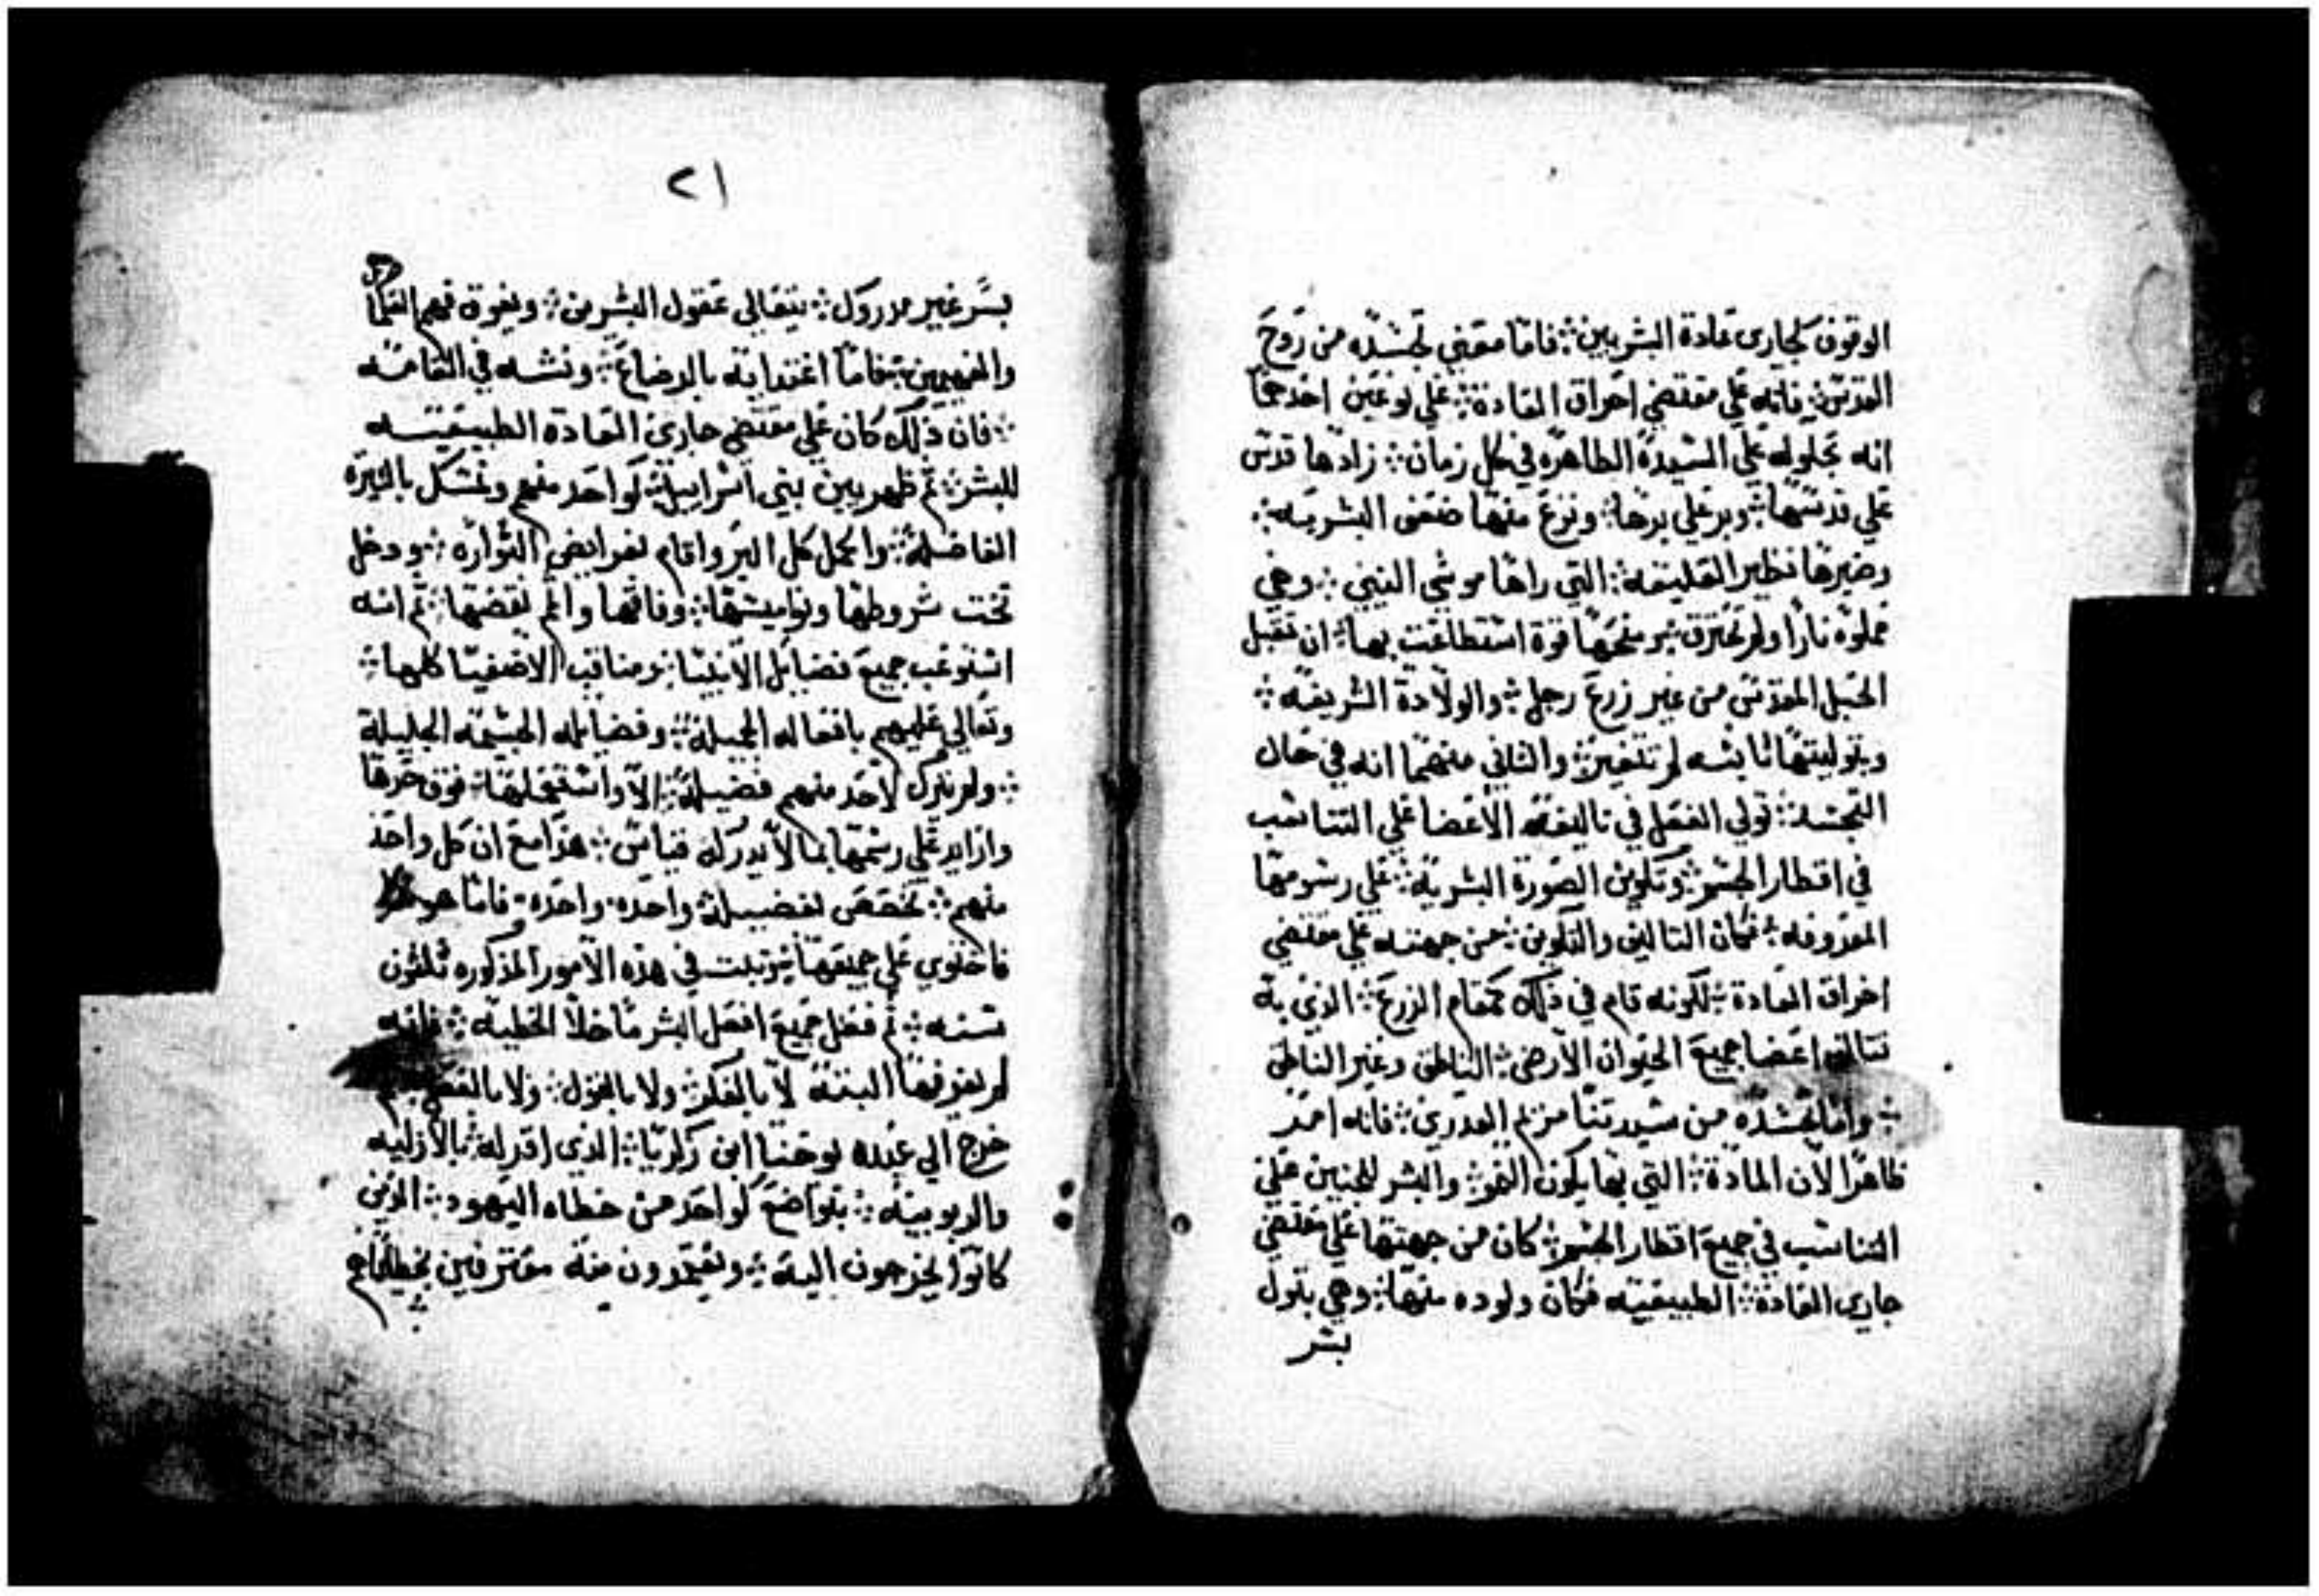 الوقوف لجارى عادة البشريين ܀ فاما معني تجسده من روح
القدس ܀ فانه علي مقتضي اخراق العادة ܀ علي نوعين احدهما
انه بحلوله علي السيدة الطاهره في كل زمان ܀ زادها قدس
علي قدسها ܀ وبر علي برها ܀ ونزع منها ضعف البشريه ܀
وصيرها نظير العليقه ܀ التي راها موسي النبي ܀ وهي
مملوه نارا ولم تحترق ܀ ومنحها قوة استطاعت بها ܀ ان تقبل
الحبل المقدس من غير زرع رجل ܀ والولادة الشريفه ܀
وبتوليتها ثابته لم تتغير ܀ والثاني منهما انه في حال
التجسد ܀ تولي الفعل في تاليفه الاعضا علي التناسب
في اقطار الجسم ܀ وتكوين الصورة البشرية ܀ علي رسومها
المعروفه ܀ فكان التاليف والتكوين ܀ من جهته علي مقتضي
اخراق العادة ܀ لكونه قام في ذلك كمقام الزرع ܀ الذي به
تتالف اعضا جميع الحيوان الارضي ܀ الناطق وغير الناطق
܀ واما تجسده من سيدتنا مريم العدري ܀ فانه امد
ظاهرا لان المادة ܀ التي بها يكون النمو ܀ والبشر للجنين علي
التناسب في جميع اقطار الجسم ܀ كان من جهتها علي مقتضي
جاري العادة ܀ الطبيعيته فكان ولوده منها ܀ وهي بتول
بسر
٢١
بسر غير مدروك ܀ يتعالي عقول البشرين ܀ ويفوق فهم العلما
والفهيمين ܀ فاما اغتدايه بالرضاع ܀ ونشه في القامه
܀ فان ذلك كان علي مقتضي جاري العادة الطبيعيته
للبشر ܀ ثم ظهر بين بني اسراييل ܀ كواحد منهم وتمسك بالسيرة
الفاضله ܀ واكمل كل البر واقام لفرايض التوراه ܀ ودخل
تحت شروطها ونواميسها ܀ وفاقها واتم نقضها ܀ ثم انه
استوعب جميع فضايل الانبيا ܀ ومناقب الاصفيا كلها ܀
وتعالي عليهم بافعاله الجميله ܀ وفضايله الجسيمه الجليلة
܀ ولم يترك لاحد منهم فضيلة ܀ الا واستكملها ܀ فوق حدها
وازايد علي رسمها بما لا يدركه قياس ܀ هذا مع ان كل واحد
منهم ܀ تخصص بفضيله ܀ واحده واحده ܀ فاما هو
فاحتوي علي جميعها ܀ وتبت في هذه الامور المذكوره تلتون
سنه ܀ ثم فعل جميع افعل البشر ما خلا الخطيه ܀ فانه
لم يعرفها البتته لا بالفكر ܀ ولا بالقول ܀ ولا بالفعل ثم
خرج الي عبده يوحنا ابن زكريا ܀ الذي اقر له ܀ بالازليه
والربوبيه ܀ بتواضع كواحد من خطاه اليهود ܀ الذين
كانوا يخرجون اليه ܀ ويعتمدون منه معترفين بخطاياهم